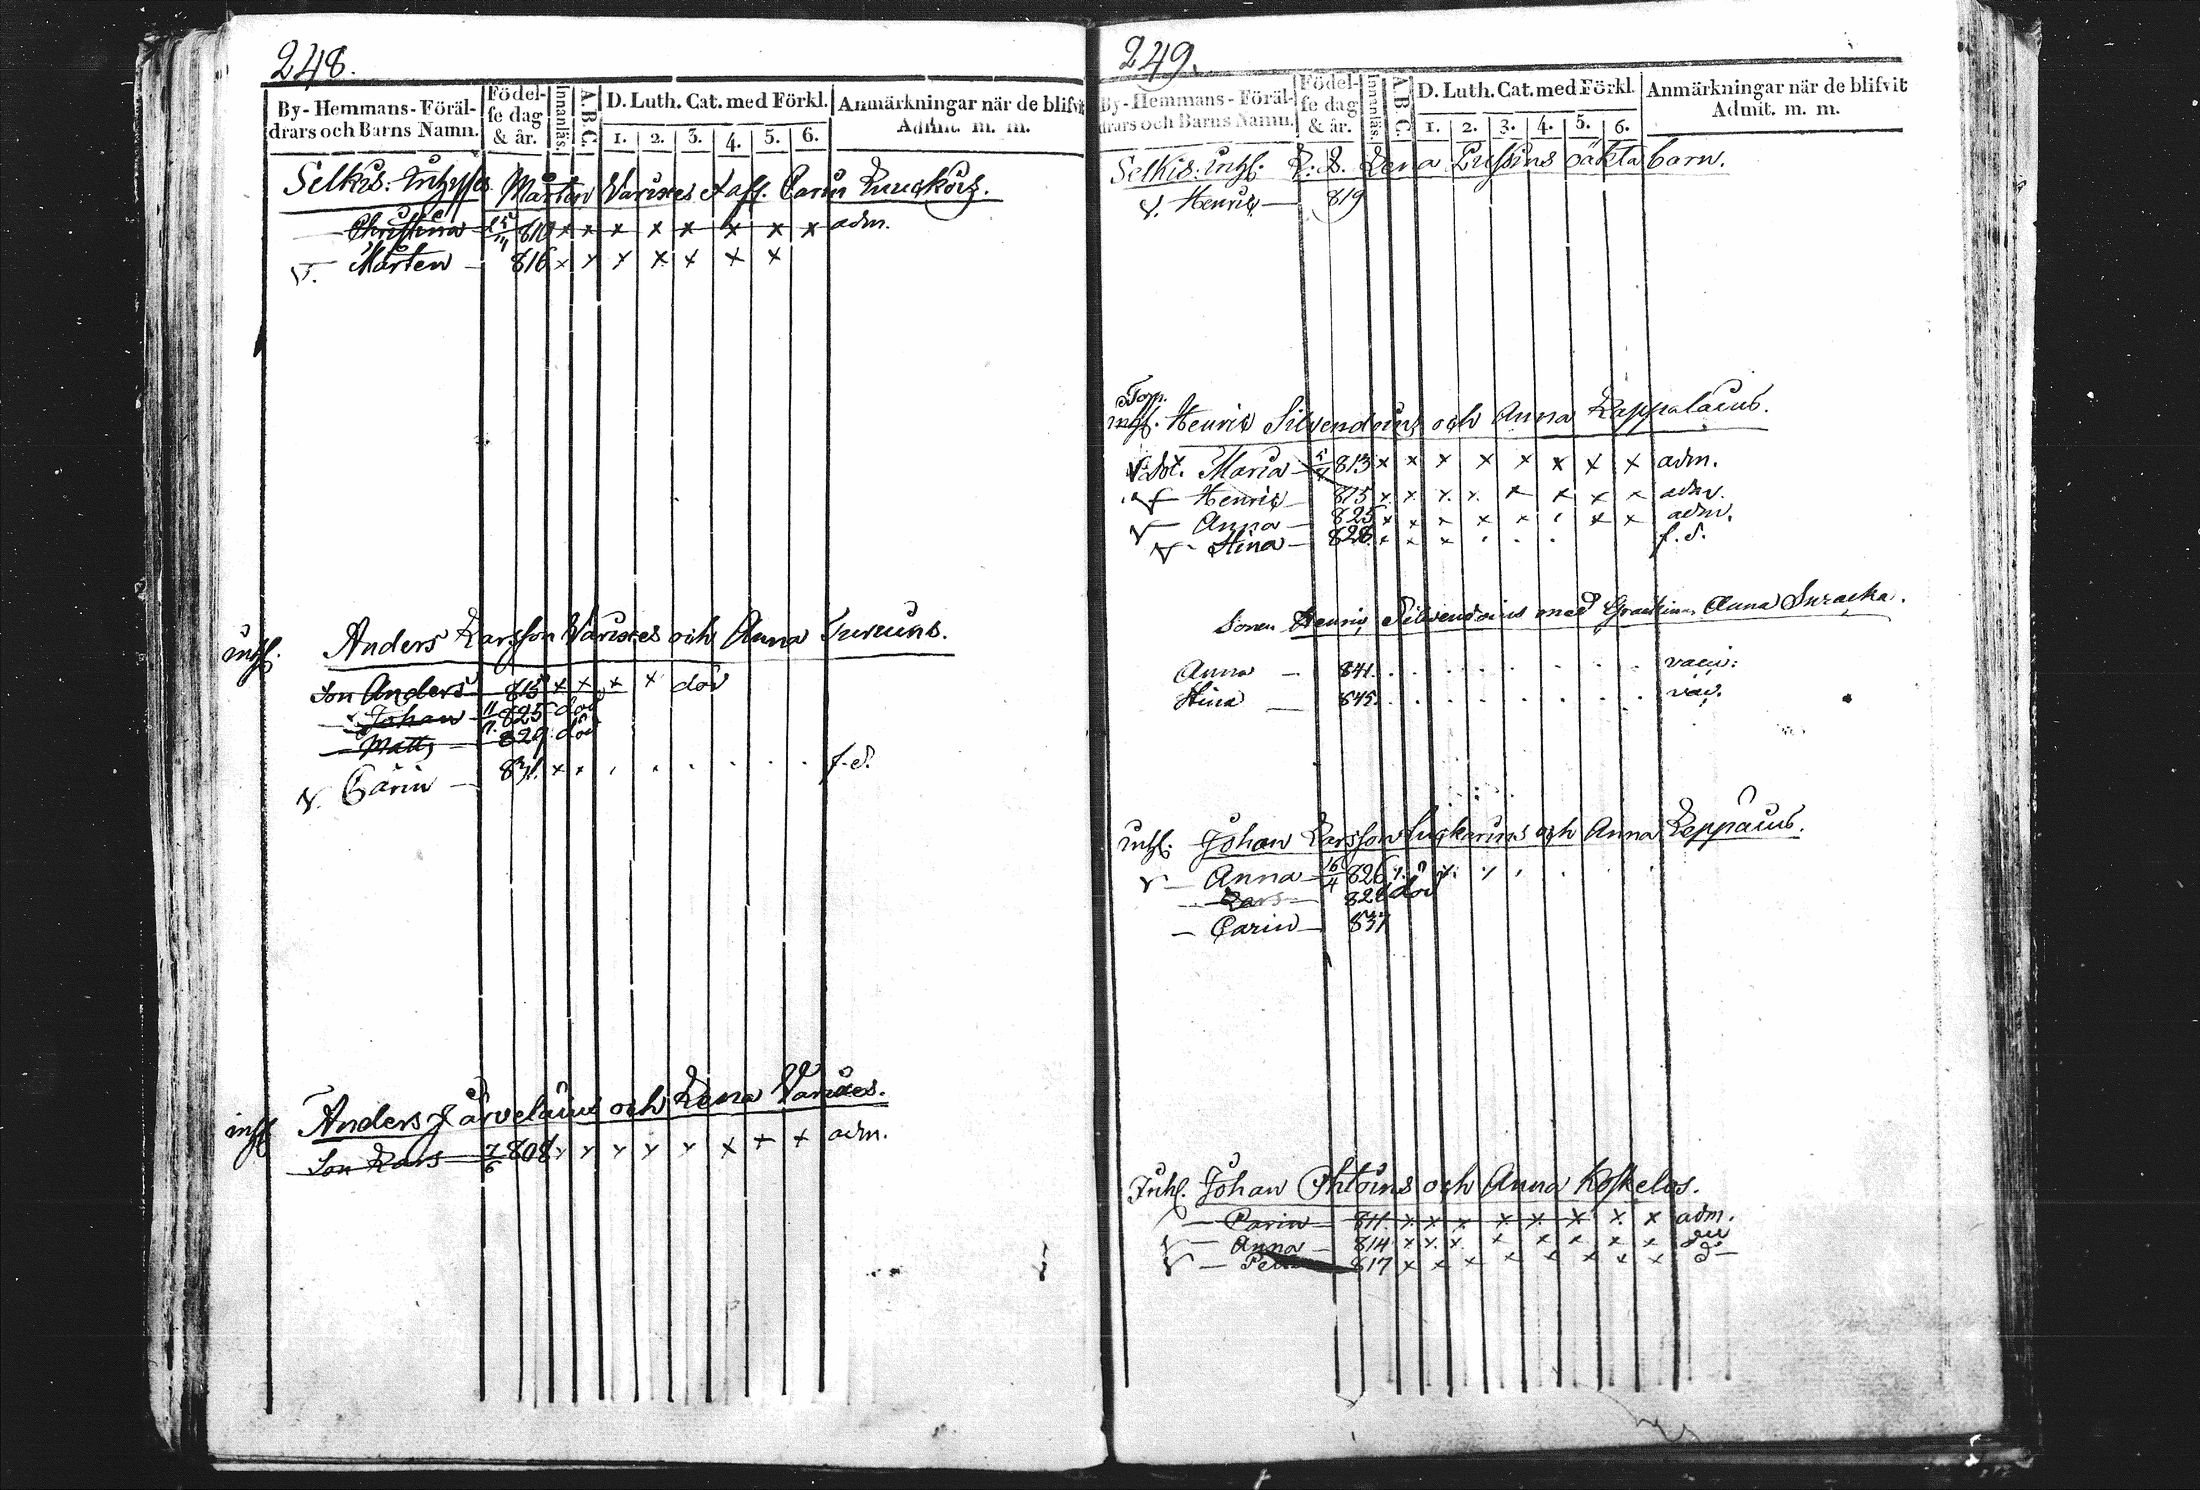 248.
By- Hemmans- Föräl-
drars och Barns Namn.
Födel-
se dag
& år.
Innanläs.
A. B. C.
D. Luth. Cat. med Förkl.
1. 2. 3. 4. 5. 6.
Anmärkningar när de blifvit
Admit. m. m.
Selkis. Mårten Varixes Carin
Christina 15/11 810 x x x x x x x x adm.
v. Mårten 816 x x x x x x x
inhs. Anders Larsson Varixes och Anna
Son Anders 815 x x x x död
Johan 11/7 825 död
Matts 829 död
v. Carin 831. x x f. d.
inhs Anders Järveläins och Lena Varixes.
Son Lars 7/6 808 x x x x x x x x adm.
249.
By- Hemmans- Föräl-
drars och Barns Namn.
Födel-
se dag
& år.
Innanläs.
A. B. C.
D. Luth. Cat. med Förkl.
1. 2. 3. 4. 5. 6.
Anmärkningar när de blifvit
Admit. m. m.
Selkis. inhs. Lena oäkta barn.
v. Henric 819
Torp.
inhs. Henric Silvendoins och Anna Kappalains.
v. Dot. Maria 5/4 813 x x x x x x x x adm.
v Henric 815 x x x x x x x x adm.
v Anna 825 x x x x x x x adm.
v Stina 828 x x x f. d.
Sonen Henric Silvendoins med Anna Suracka.
Anna 841. vacc:
Stina 845. vac.
inhs. Johan Larsson och Anna Leppäins.
v Anna 16/4 826 x. x
Lars 828 död
Carin 837
Inhs. Johan Ohtoins och Anna Koskelos.
Carin 811. x x x x x x x x adm.
v Anna 814 x x x x x x x x
v 817 x x x x x x x x d–